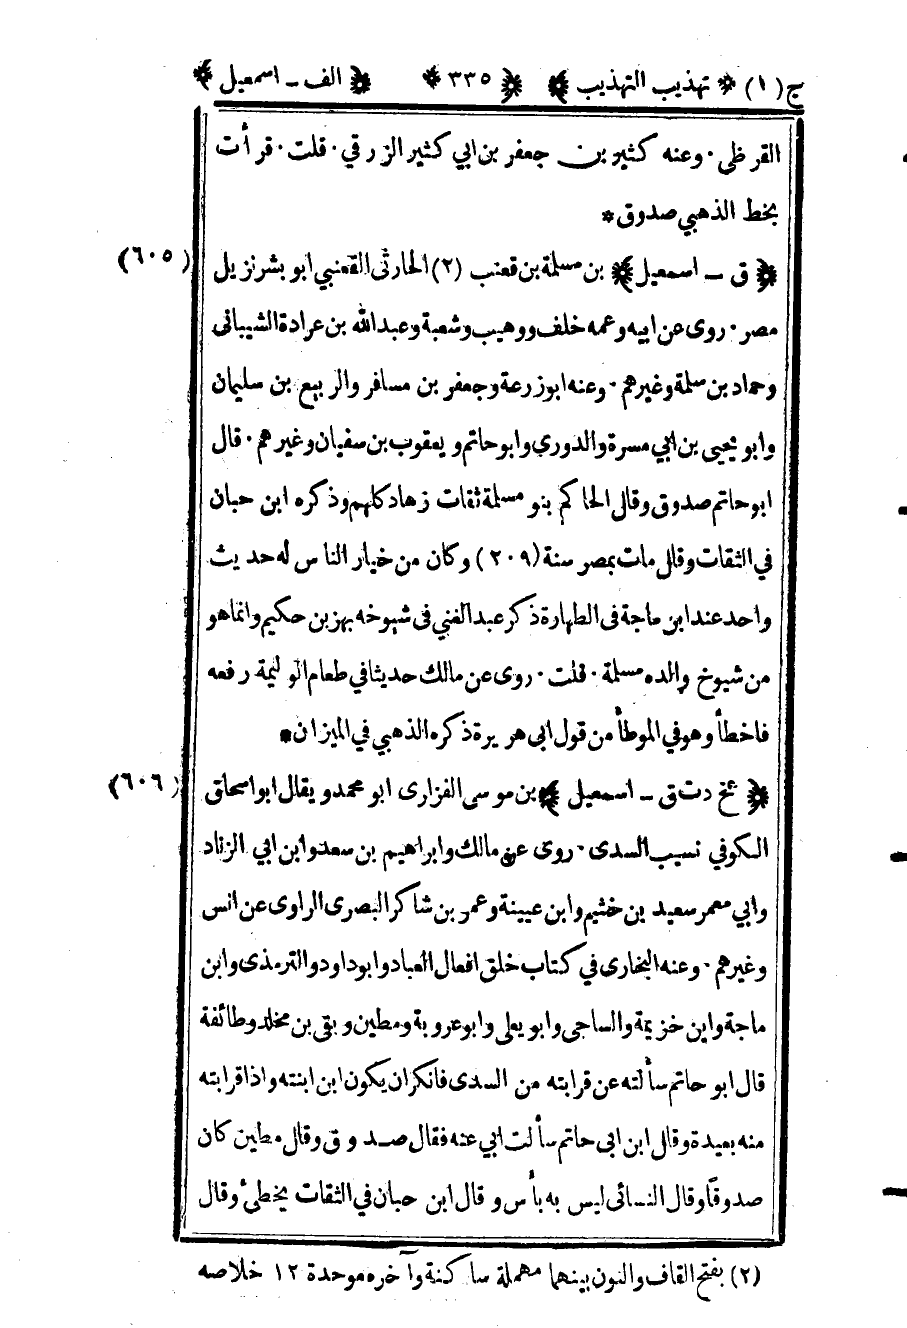 ج (١) * تهذيب التهذيب * * ٣٣٥ * * الف - اسمعيل *
القرظي · وعنه كثير بن جعفر بن ابي كثير الزرقي · قلت · قرأت
بخط الذهبي صدوق *
* ق - اسمعيل * بن مسلمة بن قعنب (٢) الحارثي القعنبي ابو بشر نزيل (٦٠٥)
مصر · روى عن ابيه وعمه خلف ووهيب وشعبة وعبدالله بن عرادة الشيباني
وحماد بن سلمة وغيرهم · وعنه ابوزرعة وجعفر بن مسافر والربيع بن سليمان
وابو يحيى بن ابي مسرة والدوري وابوحاتم ويعقوب بن سفيان وغيرهم · قال
ابوحاتم صدوق وقال الحاكم بنو مسلمة ثقات زهاد كلهم وذكره ابن حبان
في الثقات وقال مات بمصر سنة (٢٠٩) وكان من خيار الناس له حديث
واحد عند ابن ماجة فى الطهارة ذكر عبد الغني فى شيوخه بهز بن حكيم وانما هو
من شيوخ والده مسلمة · قلت · روى عن مالك حديثا في طعام الوليمة رفعه
فاخطأ وهو في الموطأ من قول ابى هريرة ذكره الذهبي في الميزان *
* عخ د ت ق - اسمعيل * بن موسى الفزارى ابو محمد ويقال ابو اسحاق (٦٠٦)
الكوفي نسيب السدى · روى عن مالك وابراهيم بن سعد وابن ابي الزناد
وابي معمر سعيد بن خثيم وابن عيينة وعمر بن شاكر البصرى الراوى عن انس
وغيرهم · وعنه البخارى في كتاب خلق افعال العباد وابو داود والترمذى وابن
ماجة وابن خزيمة والساجى وابو يعلى وابو عروبة ومطين وبقى بن مخلد وطائفة
قال ابو حاتم سألته عن قرابته من السدى فانكر ان يكون ابن ابنته واذا قرابته
منه بعيدة وقال ابن ابى حاتم سألت ابي عنه فقال صدوق وقال مطين كان
صدوقاً وقال النسائى ليس به بأس وقال ابن حبان في الثقات يخطئ وقال
(٢) بفتح القاف والنون بينهما مهملة ساكنة وآخره موحدة ١٢ خلاصه